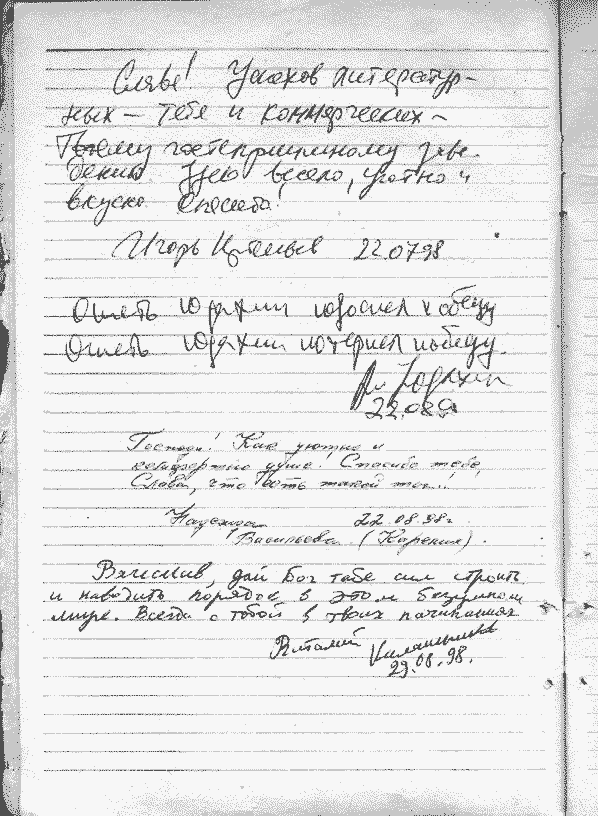 Славе! Успехов литератур-
ных – тебе и коммерческих –
Твоему гостеприимному заве-
дению. Здесь весело, уютно и
вкусно. Спасибо!
Игорь 22.07.98
Опять Юдахин опоздал к обеду
Опять Юдахин потерпел победу.
Юдахин
22.08.
Господи! Как уютно и
комфортно душе! Спасибо тебе,
Слава, что есть такой ...!
Надежда 22.08.98г.
Васильева (Карения).
Вячеслав, дай Бог тебе сил строить
и наводить порядок в этом безумном
мире. Всегда с тобой в твоих начинаниях
Виталий
29.08.98.